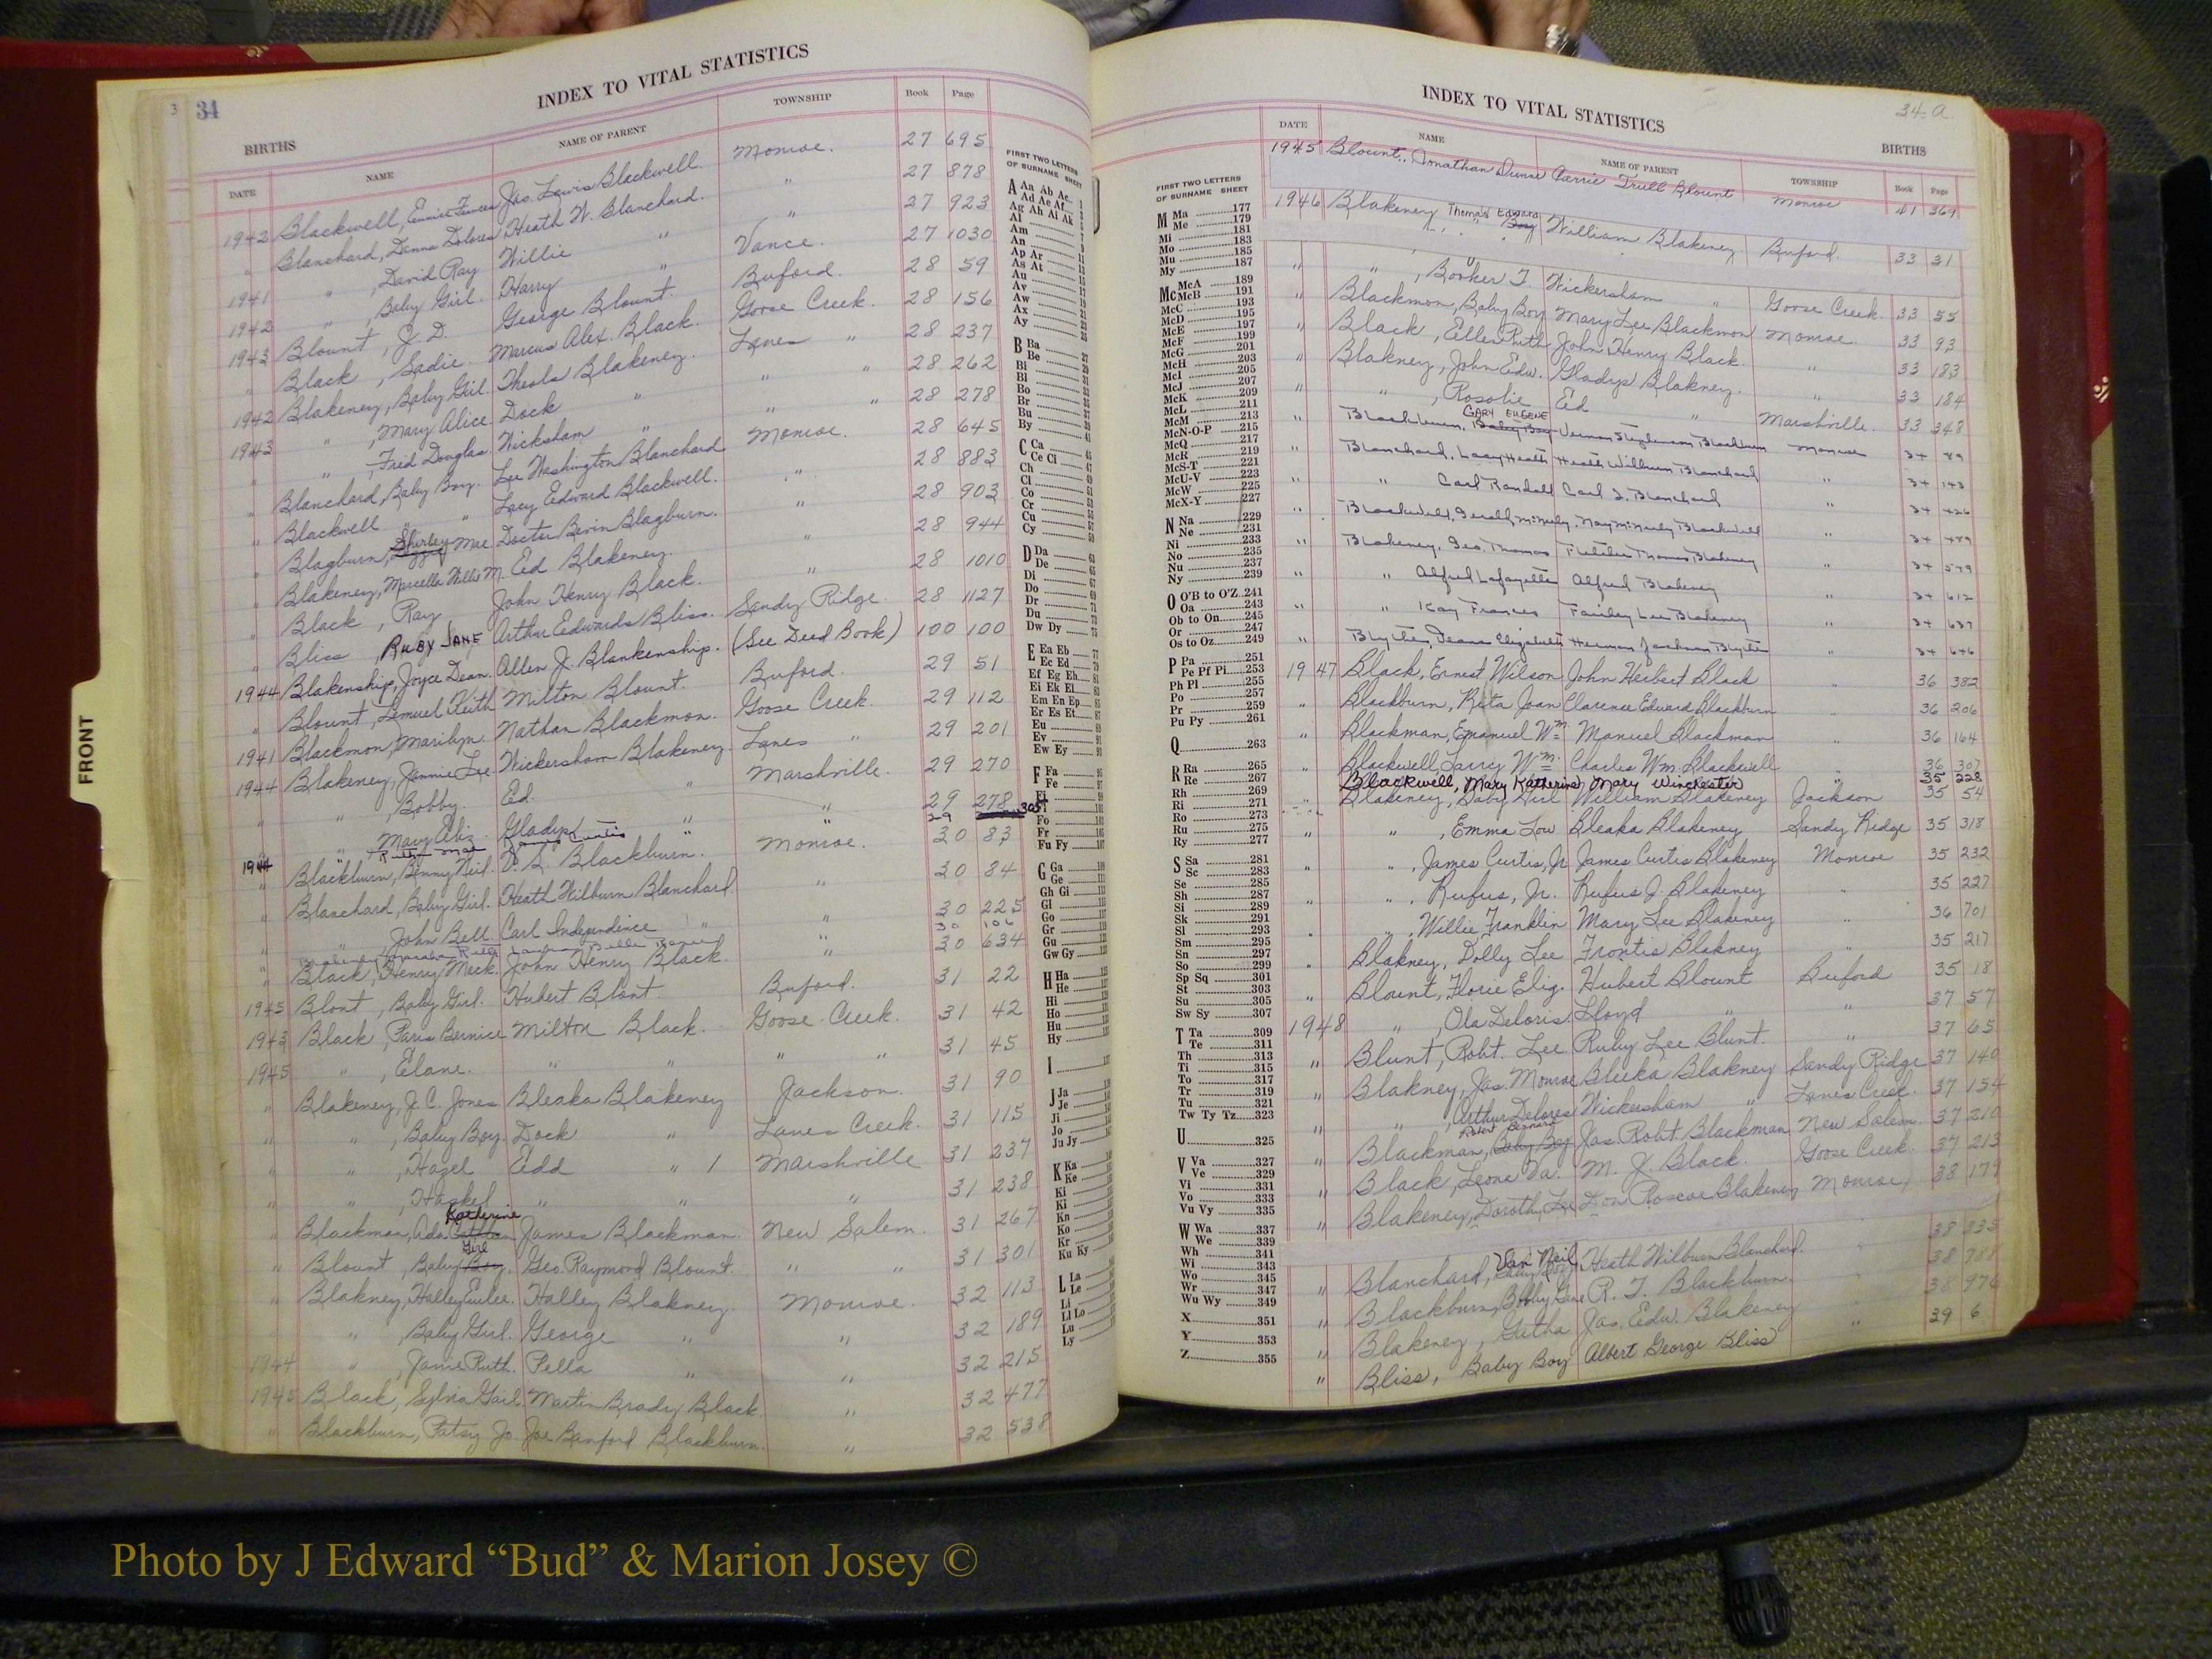 3 34
INDEX TO VITAL STATISTICS
BIRTHS
DATE NAME NAME OF PARENT TOWNSHIP Book Page
1942 Blackwell, Eunice Frances Jas. Lewis Blackwell. Monroe. 27 695
" Blanchard, Donna Dolores Heath W. Blanchard. " 27 878
1941 " , David Ray Willie " " 27 923
1942 " , Baby Girl. Harry " Vance. 27 1030
1943 Blount, J. D. George Blount. Buford. 28 59
" Black, Sadie. Marcus Alex. Black. Goose Creek. 28 156
1942 Blakeney, Baby Girl. Theola Blakeney. Lanes " 28 237
1943 " , Mary Alice. Dock " " " 28 262
" " , Fred Douglas. Wicksham " " " 28 278
" Blanchard, Baby Boy. Lee Washington Blanchard Monroe. 28 645
" Blackwell " " Lacy Edward Blackwell. " 28 883
" Blagburn, Shirley Mae Doctor Bevin Blagburn. " 28 903
" Blakeney, Marcella Willie M. Ed Blakeney. " 28 944
" Black, Ray John Henry Black. " 28 1010
" Bliss, RUBY JANE Arthur Edwards Bliss. Sandy Ridge. 28 1127
1944 Blakenship, Joyce Dean. Allen J. Blankenship. (See Deed Book) 100 100
" Blount, Lemuel Keith Milton Blount. Buford. 29 51
1941 Blackmon, Marilyn. Nathan Blackmon. Goose Creek. 29 112
1944 Blakeney, Jannie Lee. Wickersham Blakeney. Lanes " 29 201
" " , Bobby. Ed. " Marshville. 29 270
" " , Mary Eliz. Gladys " " 29 278
Ruth Mae Curtis " 29 305
1944 Blackburn, Benny Neil. D. L. Blackburn. Monroe. 30 83
" Blanchard, Baby Girl. Heath Wilburn Blanchard. " 30 84
" " , John Bell. Carl Independence " " 30 225
30 106
" Black, Henry Mack. John Henry Black. " 30 634
1945 Blont, Baby Girl. Hubert Blont. Buford. 31 22
1943 Black, Paris Bernice Milton Black. Goose Creek. 31 42
1945 " , Elane. " " " " 31 45
" Blakeney, J. C. Jones Bleaka Blakeney Jackson. 31 90
" " , Baby Boy. Dock " Lanes Creek. 31 115
" " , Hazel Edd " Marshville 31 237
" " , Haskel " " " 31 238
" Blackman, Ada Katherine James Blackman. New Salem. 31 267
" Blount, Baby Boy. Girl Geo. Raymond Blount. " " 31 301
" Blakney, Halley Eulee. Halley Blakney. Monroe. 32 113
" " , Baby Girl. George " " 32 189
1944 " , Janie Ruth. Pella " " 32 215
1945 Black, Sylvia Gail. Martin Brady Black. " 32 477
" Blackburn, Patsy Jo. Joe Banford Blackburn. " 32 538
FIRST TWO LETTERS
OF SURNAME SHEET
A Aa Ab Ac
Ad Ae Af
Ag Ah Ai Ak
Al
Am
An
Ap Ar
As At
Au
Av
Aw
Ax
Ay
B Ba
Be
Bi
Bl
Bo
Br
Bu
By
C Ca
Ce Ci
Ch
Cl
Co
Cr
Cu
Cy
D Da
De
Di
Do
Dr
Du
Dw Dy
E Ea Eb
Ec Ed
Ef Eg Eh
Ei Ek El
Em En Ep
Er Es Et
Eu
Ev
Ew Ey
F Fa
Fe
Fi
Fl
Fo
Fr
Fu Fy
G Ga
Ge
Gh Gi
Gl
Go
Gr
Gu
Gw Gy
H Ha
He
Hi
Ho
Hu
Hy
I
J Ja
Je
Ji
Jo
Ju Jy
K Ka
Ke
Ki
Kl
Kn
Ko
Kr
Ku Ky
L La
Le
Li
Ll Lo
Lu
Ly
FRONT
34-a
INDEX TO VITAL STATISTICS
BIRTHS
DATE NAME NAME OF PARENT TOWNSHIP Book Page
1945 Blount, Jonathan Dunn Carrie Trull Blount Monroe 41 369
1946 Blakeney Thomas Edward Boy William Blakeney Buford. 33 31
" " , Booker T. Wickersham " Goose Creek. 33 55
" Blackmon, Baby Boy. Mary Lee Blackmon Monroe 33 93
" Black, Ellen Ruth John Henry Black. " 33 183
" Blakney, John Edw. Gladys Blakney. " 33 184
" " , Rosalie Ed " Marshville. 33 348
" Blackburn, GARY EUGENE Baby Boy Vernon Stephenson Blackburn Monroe 34 89
" Blanchard, Lacy Heath Heath Wilburn Blanchard " 34 143
" " Carl Randall Carl I. Blanchard " 34 426
" Blackwell, Gerald McNeely. Ray McNeely Blackwell " 34 489
" Blakeney, Geo. Thomas Fletcher Thomas Blakeney " 34 579
" " Alfred Lafayette Alfred Blakeney " 34 612
" " Kay Frances Fairley Lee Blakeney " 34 637
" Blythe, Deane Elizabeth Herman Jackson Blythe " 34 646
1947 Black, Ernest Wilson John Herbert Black " 36 382
" Blackburn, Rita Joan Clarence Edward Blackburn " 36 206
" Blackman, Emanuel Wm. Manuel Blackman " 36 164
" Blackwell, Larry Wm. Charles Wm. Blackwell " 36 307
Blackwell, Mary Katherine Mary Winchester " 35 228
" Blakeney, Baby Girl William Blakeney Jackson 35 54
" " , Emma Lou Bleaka Blakeney Sandy Ridge 35 318
" " , James Curtis, Jr. James Curtis Blakeney Monroe 35 232
" " , Rufus, Jr. Rufus J. Blakeney " 35 227
" " , Willie Franklin Mary Lee Blakeney " 36 701
" Blakney, Dolly Lee Frontis Blakney " 35 217
" Blount, Florie Elig. Hubert Blount Buford 35 18
1948 " , Ola Deloris. Lloyd " " 37 57
" Blunt, Robt. Lee Ruby Lee Blunt. " 37 65
" Blakney, Jas. Monroe Bleeka Blakney Sandy Ridge 37 140
" " , Arthur Delores Wickersham " Lanes Creek. 37 154
" Blackman, Robert Bernard Baby Boy Jas. Robt. Blackman New Salem. 37 210
" Black, Leona Va. M. J. Black. Goose Creek. 37 213
" Blakeney, Doroth Lee Don Roscoe Blakeney Monroe, 38 177
" Blanchard, Van Neil Heath Wilburn Blanchard. " 38 335
" Blackburn, Bobby Gene R. T. Blackburn. 38 781
" Blakeney, Getha Jas. Edw. Blakeney 38 976
" Bliss, Baby Boy Albert George Bliss " 39 6
FIRST TWO LETTERS
OF SURNAME SHEET
M Ma 177
Me 179
Mi 181
Mo 183
Mu 185
My 187
Mc McA 189
McB 191
McC 193
McD 195
McE 197
McF 199
McG 201
McH 203
McI 205
McJ 207
McK 209
McL 211
McM 213
McN-O-P 215
McQ 217
McR 219
McS-T 221
McU-V 223
McW 225
McX-Y 227
N Na 229
Ne 231
Ni 233
No 235
Nu 237
Ny 239
O O'B to O'Z 241
Oa 243
Ob to On 245
Or 247
Os to Oz 249
P Pa 251
Pe Pf Pi 253
Ph Pl 255
Po 257
Pr 259
Pu Py 261
Q 263
R Ra 265
Re 267
Rh 269
Ri 271
Ro 273
Ru 275
Ry 277
S Sa 281
Sc 283
Se 285
Sh 287
Si 289
Sk 291
Sl 293
Sm 295
Sn 297
So 299
Sp Sq 301
St 303
Su 305
Sw Sy 307
T Ta 309
Te 311
Th 313
Ti 315
To 317
Tr 319
Tu 321
Tw Ty Tz 323
U 325
V Va 327
Ve 329
Vi 331
Vo 333
Vu Vy 335
W Wa 337
We 339
Wh 341
Wi 343
Wo 345
Wr 347
Wu Wy 349
X 351
Y 353
Z 355
Photo by J Edward “Bud” & Marion Josey ©